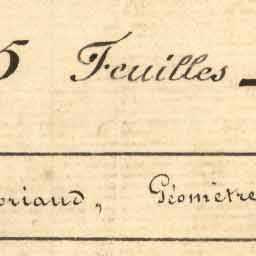 5 Feuilles
oriaud, Géomètre